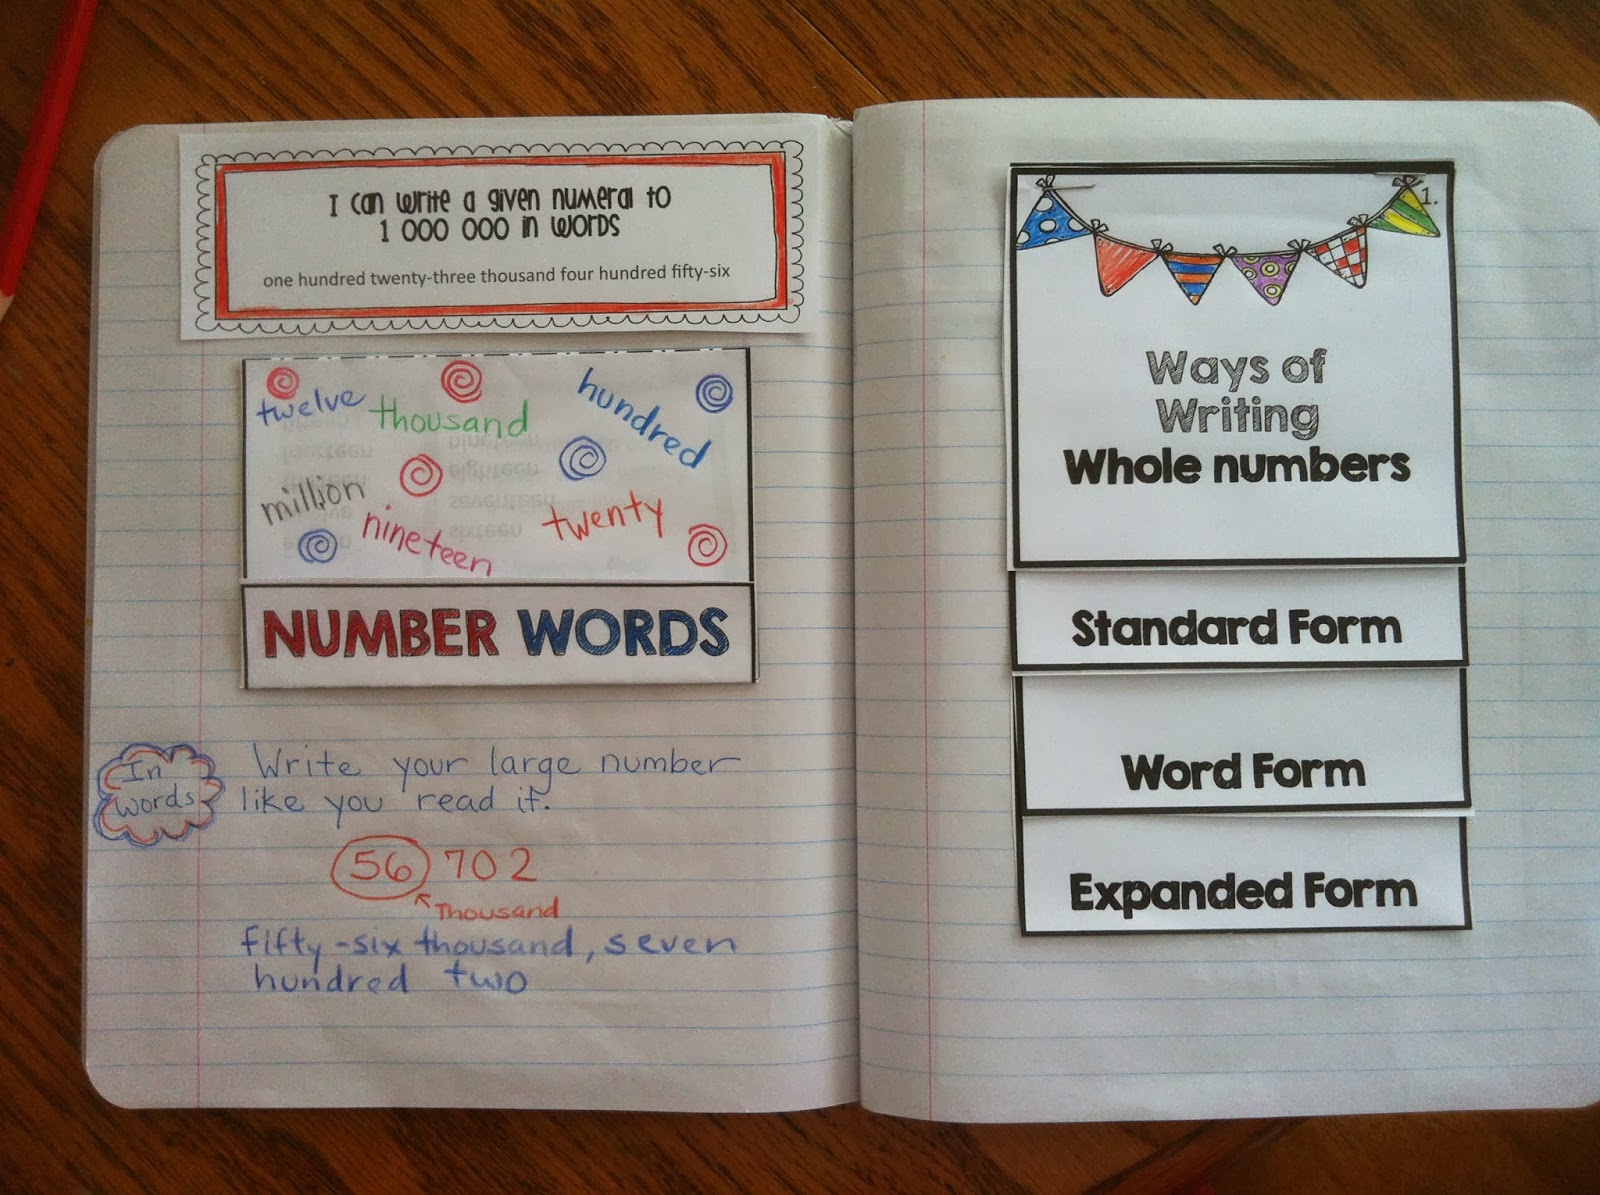 I can write a given numeral to
1 000 000 in words
one hundred twenty-three thousand four hundred fifty-six
twelve
thousand
hundred
million
nineteen
twenty
NUMBER WORDS
In
words
Write your large number
like you read it.
56 702
Thousand
fifty-six thousand, seven
hundred two
1.
Ways of
Writing
Whole numbers
Standard Form
Word Form
Expanded Form